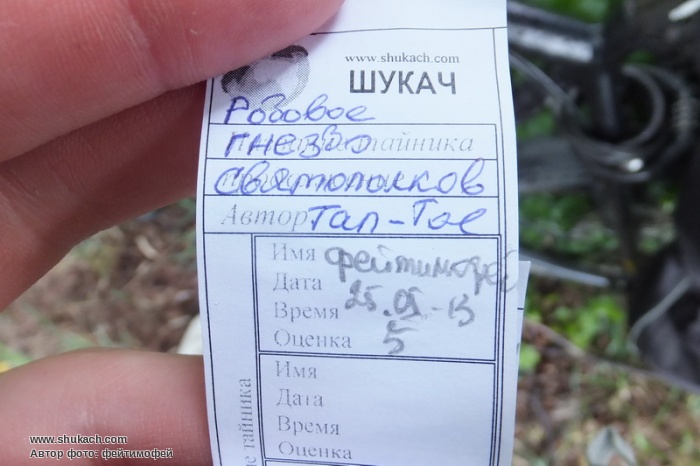 www.shukach.com
ШУКАЧ
Родовое
гнездо тайника
Святополков
Автор Тал-Тос
Имя фейтимофей
Дата 25.05-13
Время
Оценка 5
Имя
Дата
Время
Оценка
тайника
www.shukach.com
Автор фото: фейтимофей